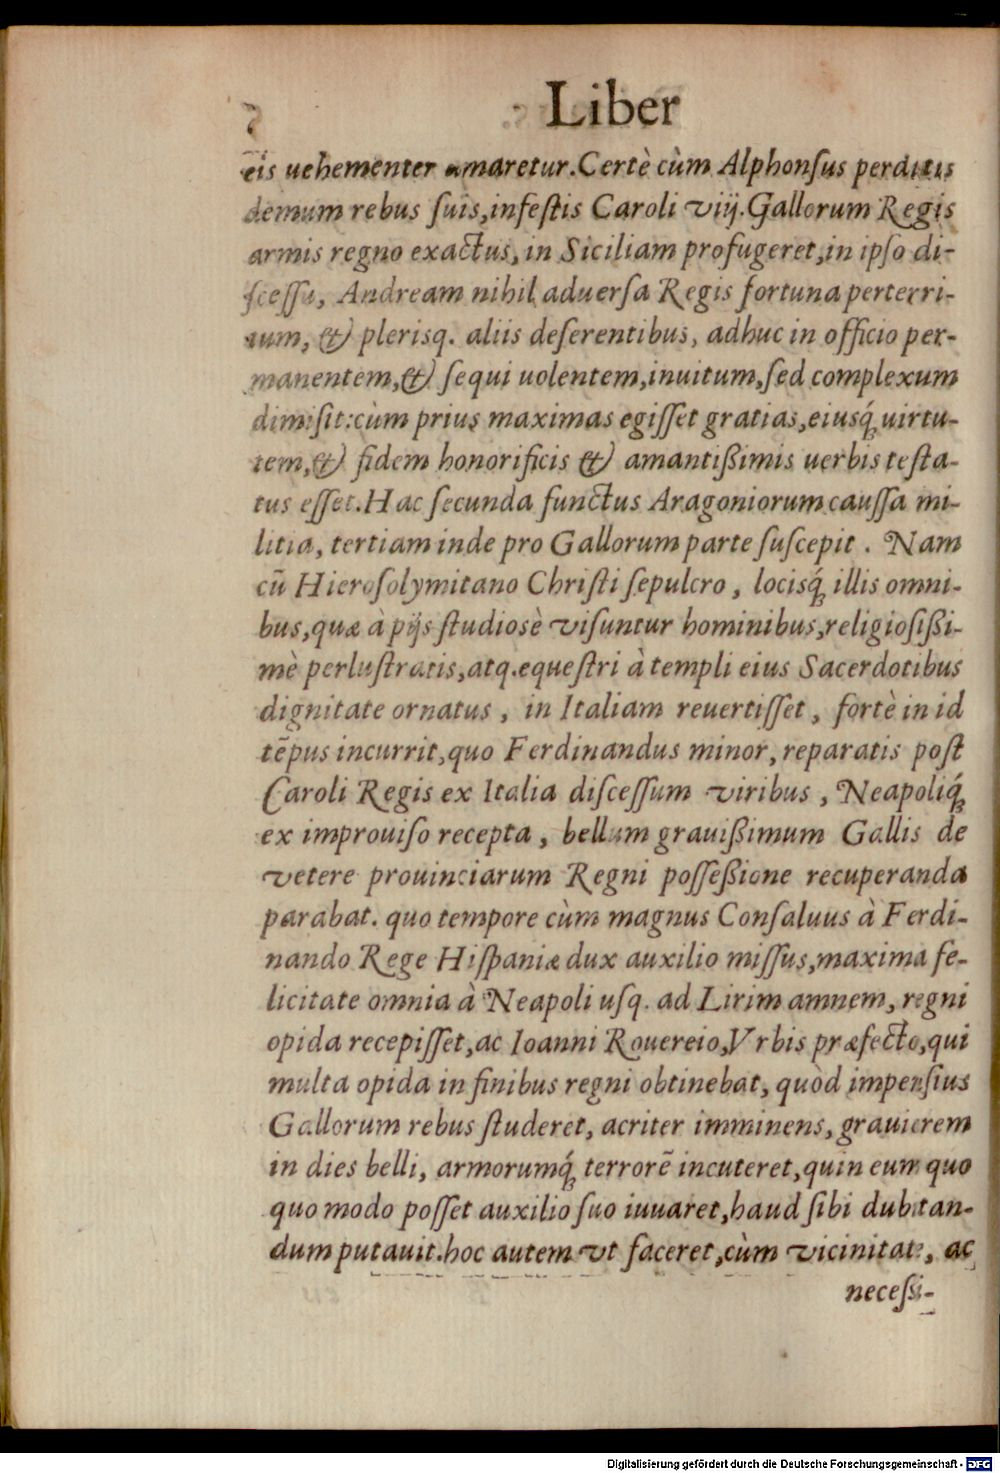 Liber
eis uehementer amaretur. Certè cùm Alphonſus perditis
demum rebus ſuis, infeſtis Caroli viij. Gallorum Regis
armis regno exactus, in Siciliam profugeret, in ipſo di-
ſceſſu, Andream nihil aduerſa Regis fortuna perterri-
tum, & plerisq. aliis deſerentibus, adhuc in officio per-
manentem, & ſequi uolentem, inuitum, ſed complexum
dimiſit: cùm prius maximas egiſſet gratias, eiusq́; uirtu-
tem, & fidem honorificis & amantißimis uerbis teſta-
tus eſſet. Hac ſecunda functus Aragoniorum cauſſa mi-
litia, tertiam inde pro Gallorum parte ſuſcepit. Nam
cū Hieroſolymitano Chriſti ſepulcro, locisq́; illis omni-
bus, quæ à pijs ſtudiosè viſuntur hominibus, religioſißi-
mè perluſtratis, atq. equeſtri à templi eius Sacerdotibus
dignitate ornatus, in Italiam reuertiſſet, fortè in id
tēpus incurrit, quo Ferdinandus minor, reparatis poſt
Caroli Regis ex Italia diſceſſum viribus, Neapoliq́;
ex improuiſo recepta, bellum grauißimum Gallis de
vetere prouinciarum Regni poſſeßione recuperanda
parabat. quo tempore cùm magnus Conſaluus à Ferdi-
nando Rege Hiſpaniæ dux auxilio miſſus, maxima fe-
licitate omnia à Neapoli uſq. ad Lirim amnem, regni
opida recepiſſet, ac Ioanni Rouereio, Vrbis præfecto, qui
multa opida in finibus regni obtinebat, quòd impenſius
Gallorum rebus ſtuderet, acriter imminens, grauiorem
in dies belli, armorumq́; terrorē incuteret, quin eum quo
quo modo poſſet auxilio ſuo iuuaret, haud ſibi dubitan-
dum putauit. hoc autem vt faceret, cùm vicinitate, ac
neceſſi-
Digitalisierung gefördert durch die Deutsche Forschungsgemeinschaft - DFG